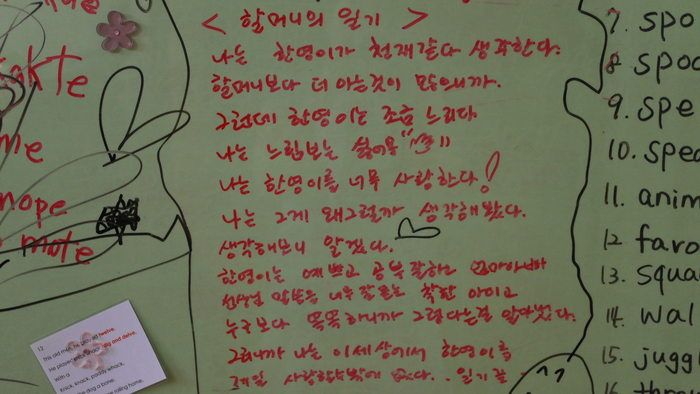 < 할머니의 일기 >
나는 한영이가 천재같다 생각한다.
할머니보다 더 아는것이 많으니까.
그런데 한영이는 조금 느리다.
나는 느림보는 싫어용
나는 한영이를 너무 사랑한다!
나는 그게 왜그럴까 생각해봤다.
생각해보니 알겠다.
한영이는 예쁘고 공부 잘하고 엄마아빠
선생님 말씀을 너무 잘 듣는 착한 아이고
누구보다 똑똑하니까 그렇다는걸 알아냈다.
그러니까 나는 이세상에서 한영이를
제일 사랑할수밖에 없다.. 일기끝
akte
me
nope
mote
12
this old man, he played twelve.
He played dig and delve.
With a
Knick, knack, paddy whack,
dog a bone.
rolling home.
7. spo
8 spoo
9. spe
10. spec
11. anim
12 favo
13. squa
14. wal
15. jugg
16 thr